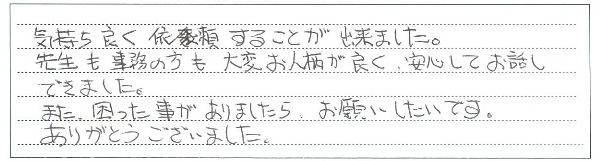 気持ち良く依頼することが出来ました。
先生も事務の方も大変お人柄が良く、安心してお話し
できました。
また、困った事がありましたら、お願いしたいです。
ありがとうございました。